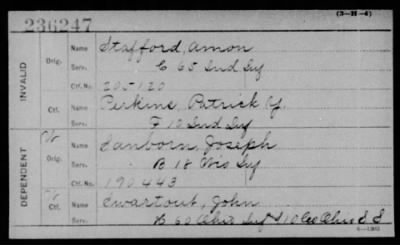 (3—21—6)
236247
INVALID
Orig.
Name Stafford, Amon
Serv. E 65 Ind Inf
Ctf. No. 205120
Ctf.
Name Perkins, Patrick Y.
Serv. F 10 Ind Inf
DEPENDENT
Orig.
Name Sanborn, Joseph
Serv. B 18 Wis Inf
Ctf. No. 190443
Ctf.
Name Swartout, John
Serv. B 60 Ohio Inf & 10 Co Ohio S S